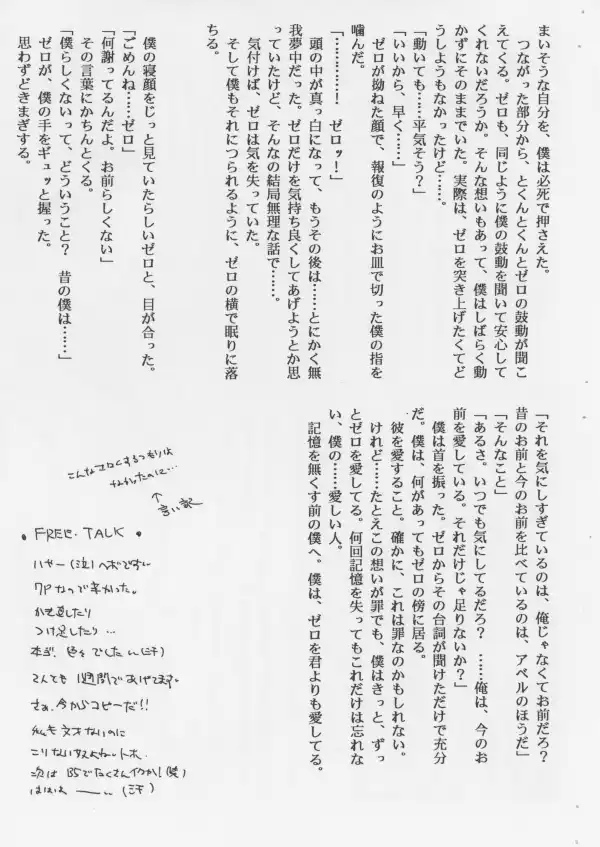 まいそうな自分を、僕は必死で押さえた。
つながった部分から、とくんとくんとゼロの鼓動が聞こ
えてくる。ゼロも、同じように僕の鼓動を聞いて安心して
くれないだろうか。そんな想いもあって、僕はしばらく動
かずにそのままでいた。実際は、ゼロを突き上げたくてど
うしようもなかったけど……。
「動いても……平気そう？」
「いいから、早く……」
ゼロが拗ねた顔で、報復のようにお皿で切った僕の指を
噛んだ。
「…………！　ゼロッ！」
頭の中が真っ白になって、もうその後は……とにかく無
我夢中だった。ゼロだけを気持ち良くしてあげようとか思
っていたけど、そんなの結局無理な話で……。
気付けば、ゼロは気を失っていた。
そして僕もそれにつられるように、ゼロの横で眠りに落
ちる。
僕の寝顔をじっと見ていたらしいゼロと、目が合った。
「ごめんね……ゼロ」
「何謝ってるんだよ。お前らしくない」
その言葉にかちんとくる。
「僕らしくないって、どういうこと？　昔の僕は……」
ゼロが、僕の手をギュッと握った。
思わずどきまぎする。
「それを気にしすぎているのは、俺じゃなくてお前だろ？
昔のお前と今のお前を比べているのは、アベルのほうだ」
「そんなこと」
「あるさ。いつでも気にしてるだろ？　……俺は、今のお
前を愛している。それだけじゃ足りないか？」
僕は首を振った。ゼロからその台詞が聞けただけで充分
だ。僕は、何があってもゼロの傍に居る。
彼を愛すること。確かに、これは罪なのかもしれない。
けれど……たとえこの想いが罪でも、僕はきっと、ずっ
とゼロを愛してる。何回記憶を失ってもこれだけは忘れな
い、僕の……愛しい人。
記憶を無くす前の僕へ。僕は、ゼロを君よりも愛してる。
こんなエロくするつもりは
なかったのに…
↑
言い訳
● FREE・TALK ●
ハヤー(泣)ヘボですい
7Pなので辛かった。
かき直したり
つけ足したり…
本当、色々でした…(汗)
でんても1週間であげてます。
さあ、今からコピーだ!!
私も文才ないのに
こりないなよねートホ。
次はB5でたくさん
ははは ——…(汗)